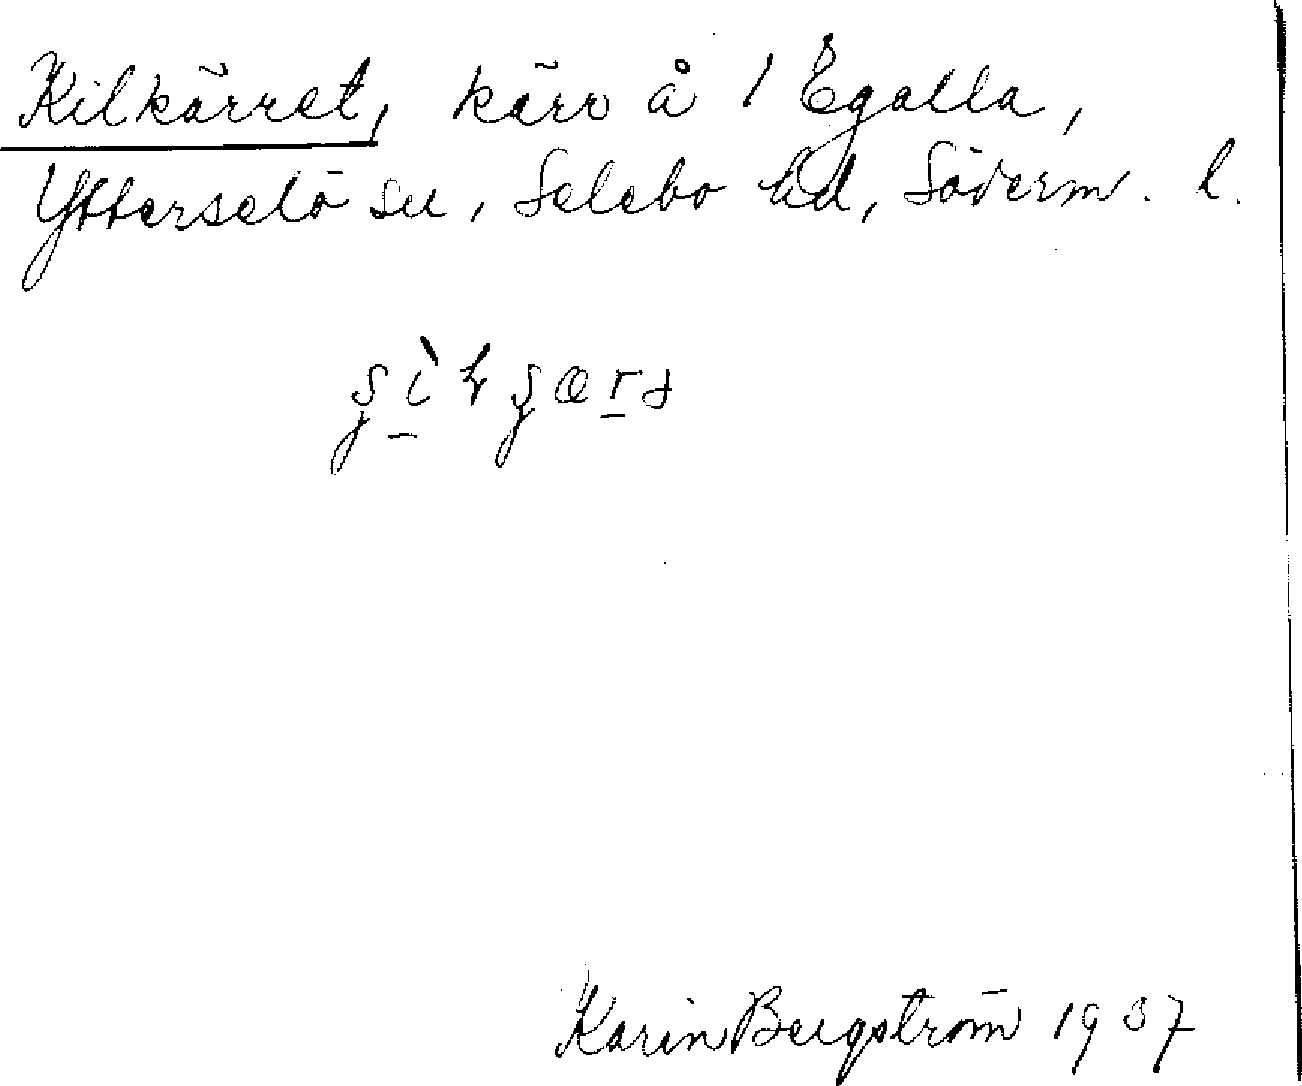 Kilkärret, kärr å 1 Egalla,
Ytterselö sn, Selebo hd, Söderm. l.
Karin Bergström 1937